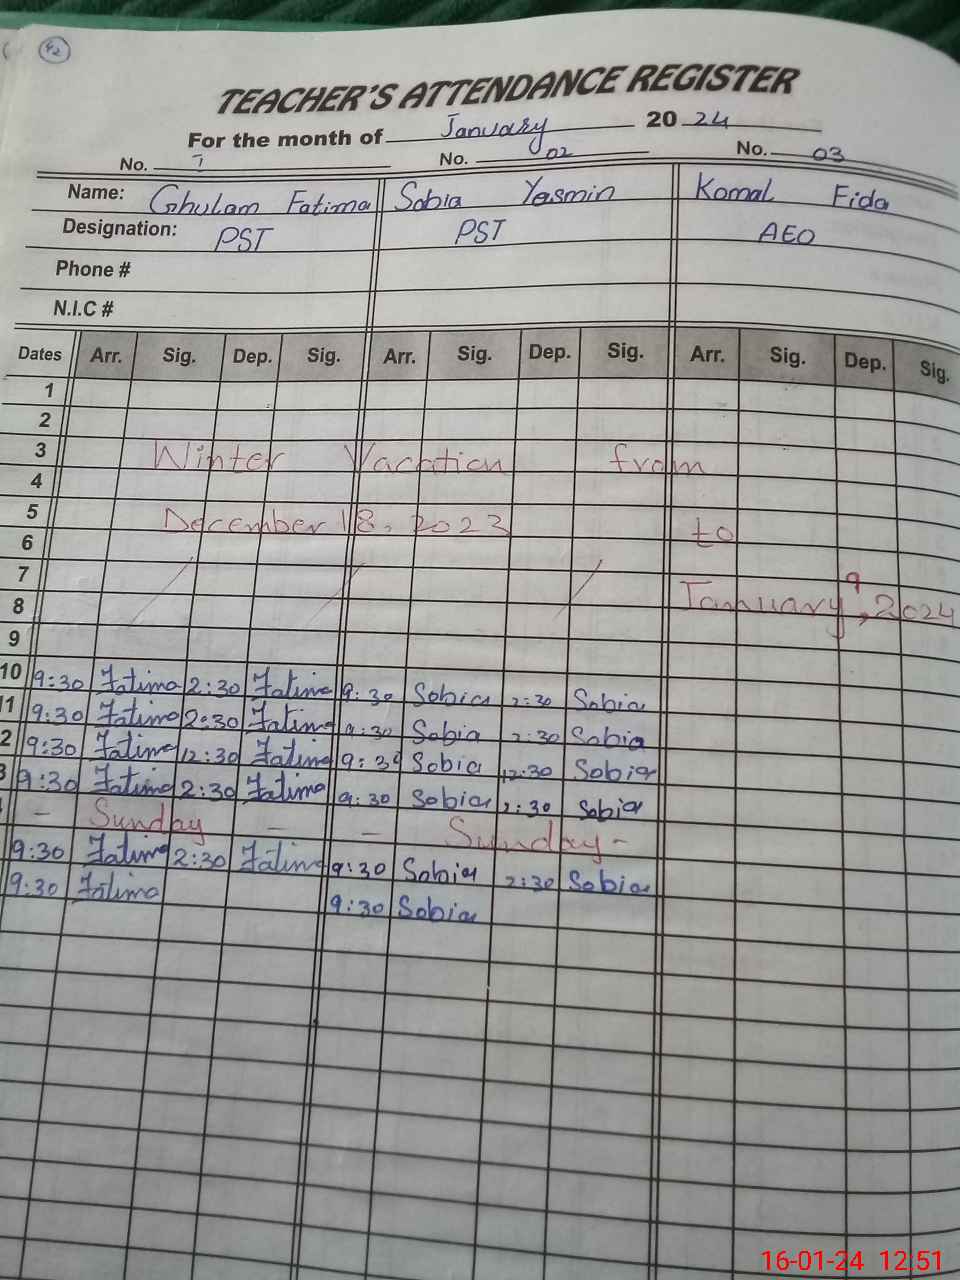 42
TEACHER'S ATTENDANCE REGISTER
For the month of January 20 24
No. 1 No. 02 No. 03
Name: Ghulam Fatima Sobia Yasmin Komal Fida
Designation: PST PST AEO
Phone #
N.I.C #
Dates Arr. Sig. Dep. Sig. Arr. Sig. Dep. Sig. Arr. Sig. Dep. Sig.
1
2
3 Winter Vacation from
4
5 December 18, 2023 to
6
7
8 January 9, 2024
9
10 9:30 Fatima 2:30 Fatima 9:30 Sobia 2:30 Sobia
11 9:30 Fatima 2:30 Fatima 9:30 Sobia 2:30 Sobia
2 9:30 Fatima 12:30 Fatima 9:30 Sobia 12:30 Sobia
3 9:30 Fatima 2:30 Fatima 9:30 Sobia 2:30 Sobia
- Sunday - - Sunday -
9:30 Fatima 2:30 Fatima 9:30 Sobia 2:30 Sobia
9:30 Fatima 9:30 Sobia
16-01-24 12:51